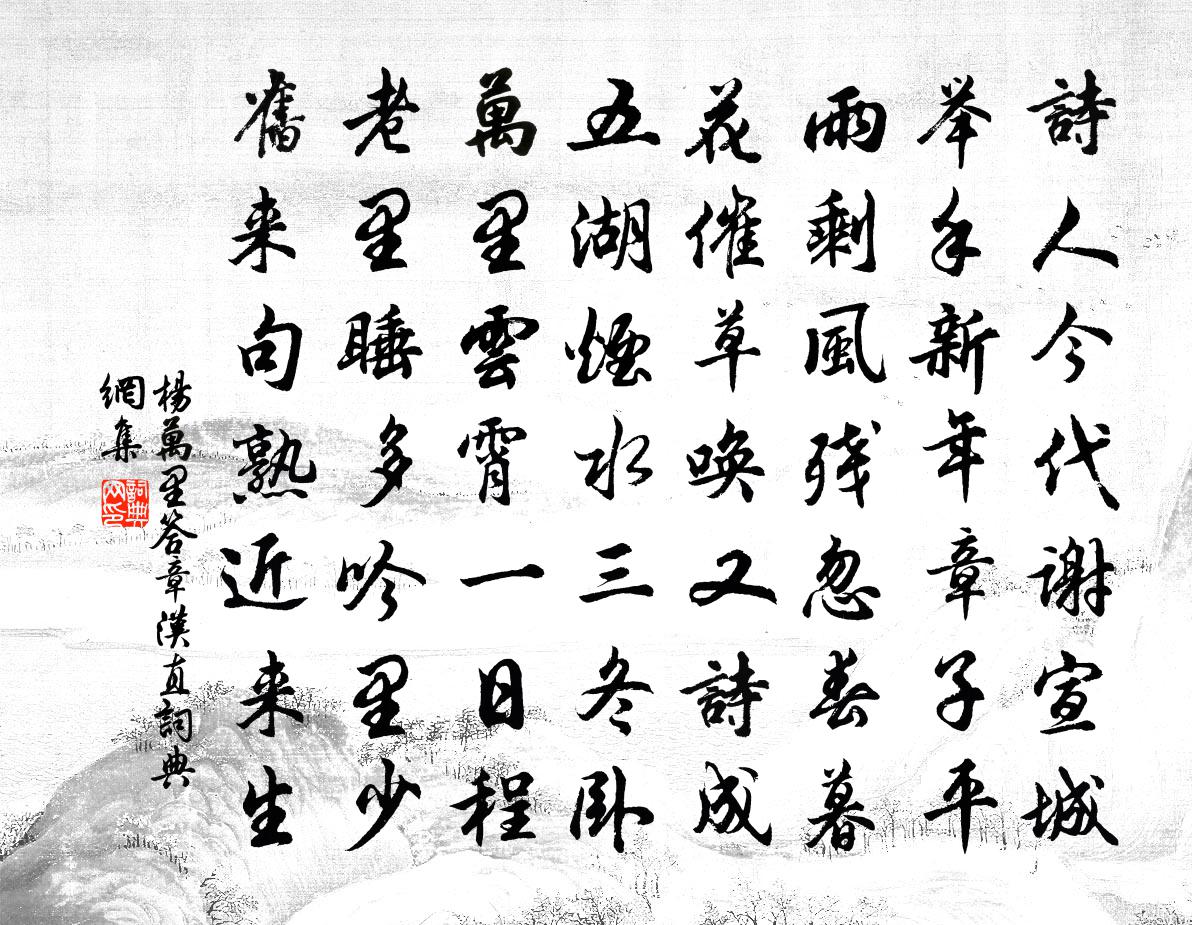 詩人今代謝宣城
举手新年章子平
雨剩風残忽春暮
花催草唤又詩成
五湖煙水三冬卧
萬里雲霄一日程
老里睡多吟里少
舊来句熟近来生
楊萬里答章漢直詞典
網集
詞典网印